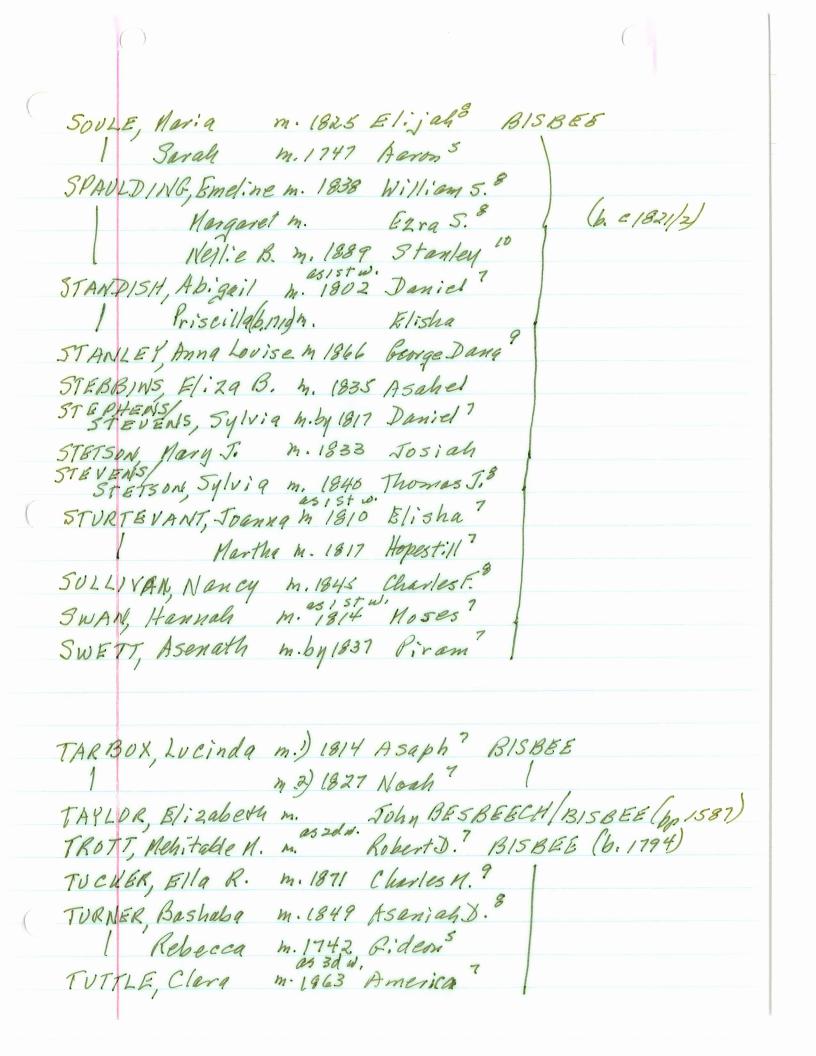 SOULE, Maria m. 1825 Elijah⁸ BISBEE
| Sarah m. 1747 Aaron⁵
SPAULDING, Emeline m. 1838 William S.⁸
Margaret m. Ezra S.⁸ (b. c 1821/2)
Nellie B. m. 1889 Stanley¹⁰
as 1st w.
STANDISH, Abigail m. 1802 Daniel⁷
| Priscilla m. Elisha
STANLEY, Anna Louise m 1866 George Dana⁹
STEBBINS, Eliza B. m. 1835 Asahel
STEPHENS/
STEVENS, Sylvia m. by 1817 Daniel⁷
STETSON, Mary J. m. 1833 Josiah
STEVENS/
STETSON, Sylvia m. 1840 Thomas J.⁸
as 1st w.
STURTEVANT, Joanna m 1810 Elisha⁷
| Martha m. 1817 Hopestill⁷
SULLIVAN, Nancy m. 1845 Charles F.⁸
as 1st w.
SWAN, Hannah m. 1814 Moses⁷
SWETT, Asenath m. by 1837 Piram⁷
TARBOX, Lucinda m. 1) 1814 Asaph⁷ BISBEE
| m 2) 1827 Noah⁷ |
TAYLOR, Elizabeth m. John BESBEECH/BISBEE (bp 1587)
as 2d w.
TROTT, Mehitable M. m. Robert D.⁷ BISBEE (b. 1794)
TUCKER, Ella R. m. 1871 Charles M.⁹
TURNER, Bashaba m. 1849 Asaniah D.⁸
| Rebecca m. 1742 Gideon⁵
as 3d w.
TUTTLE, Clara m. 1863 America⁷